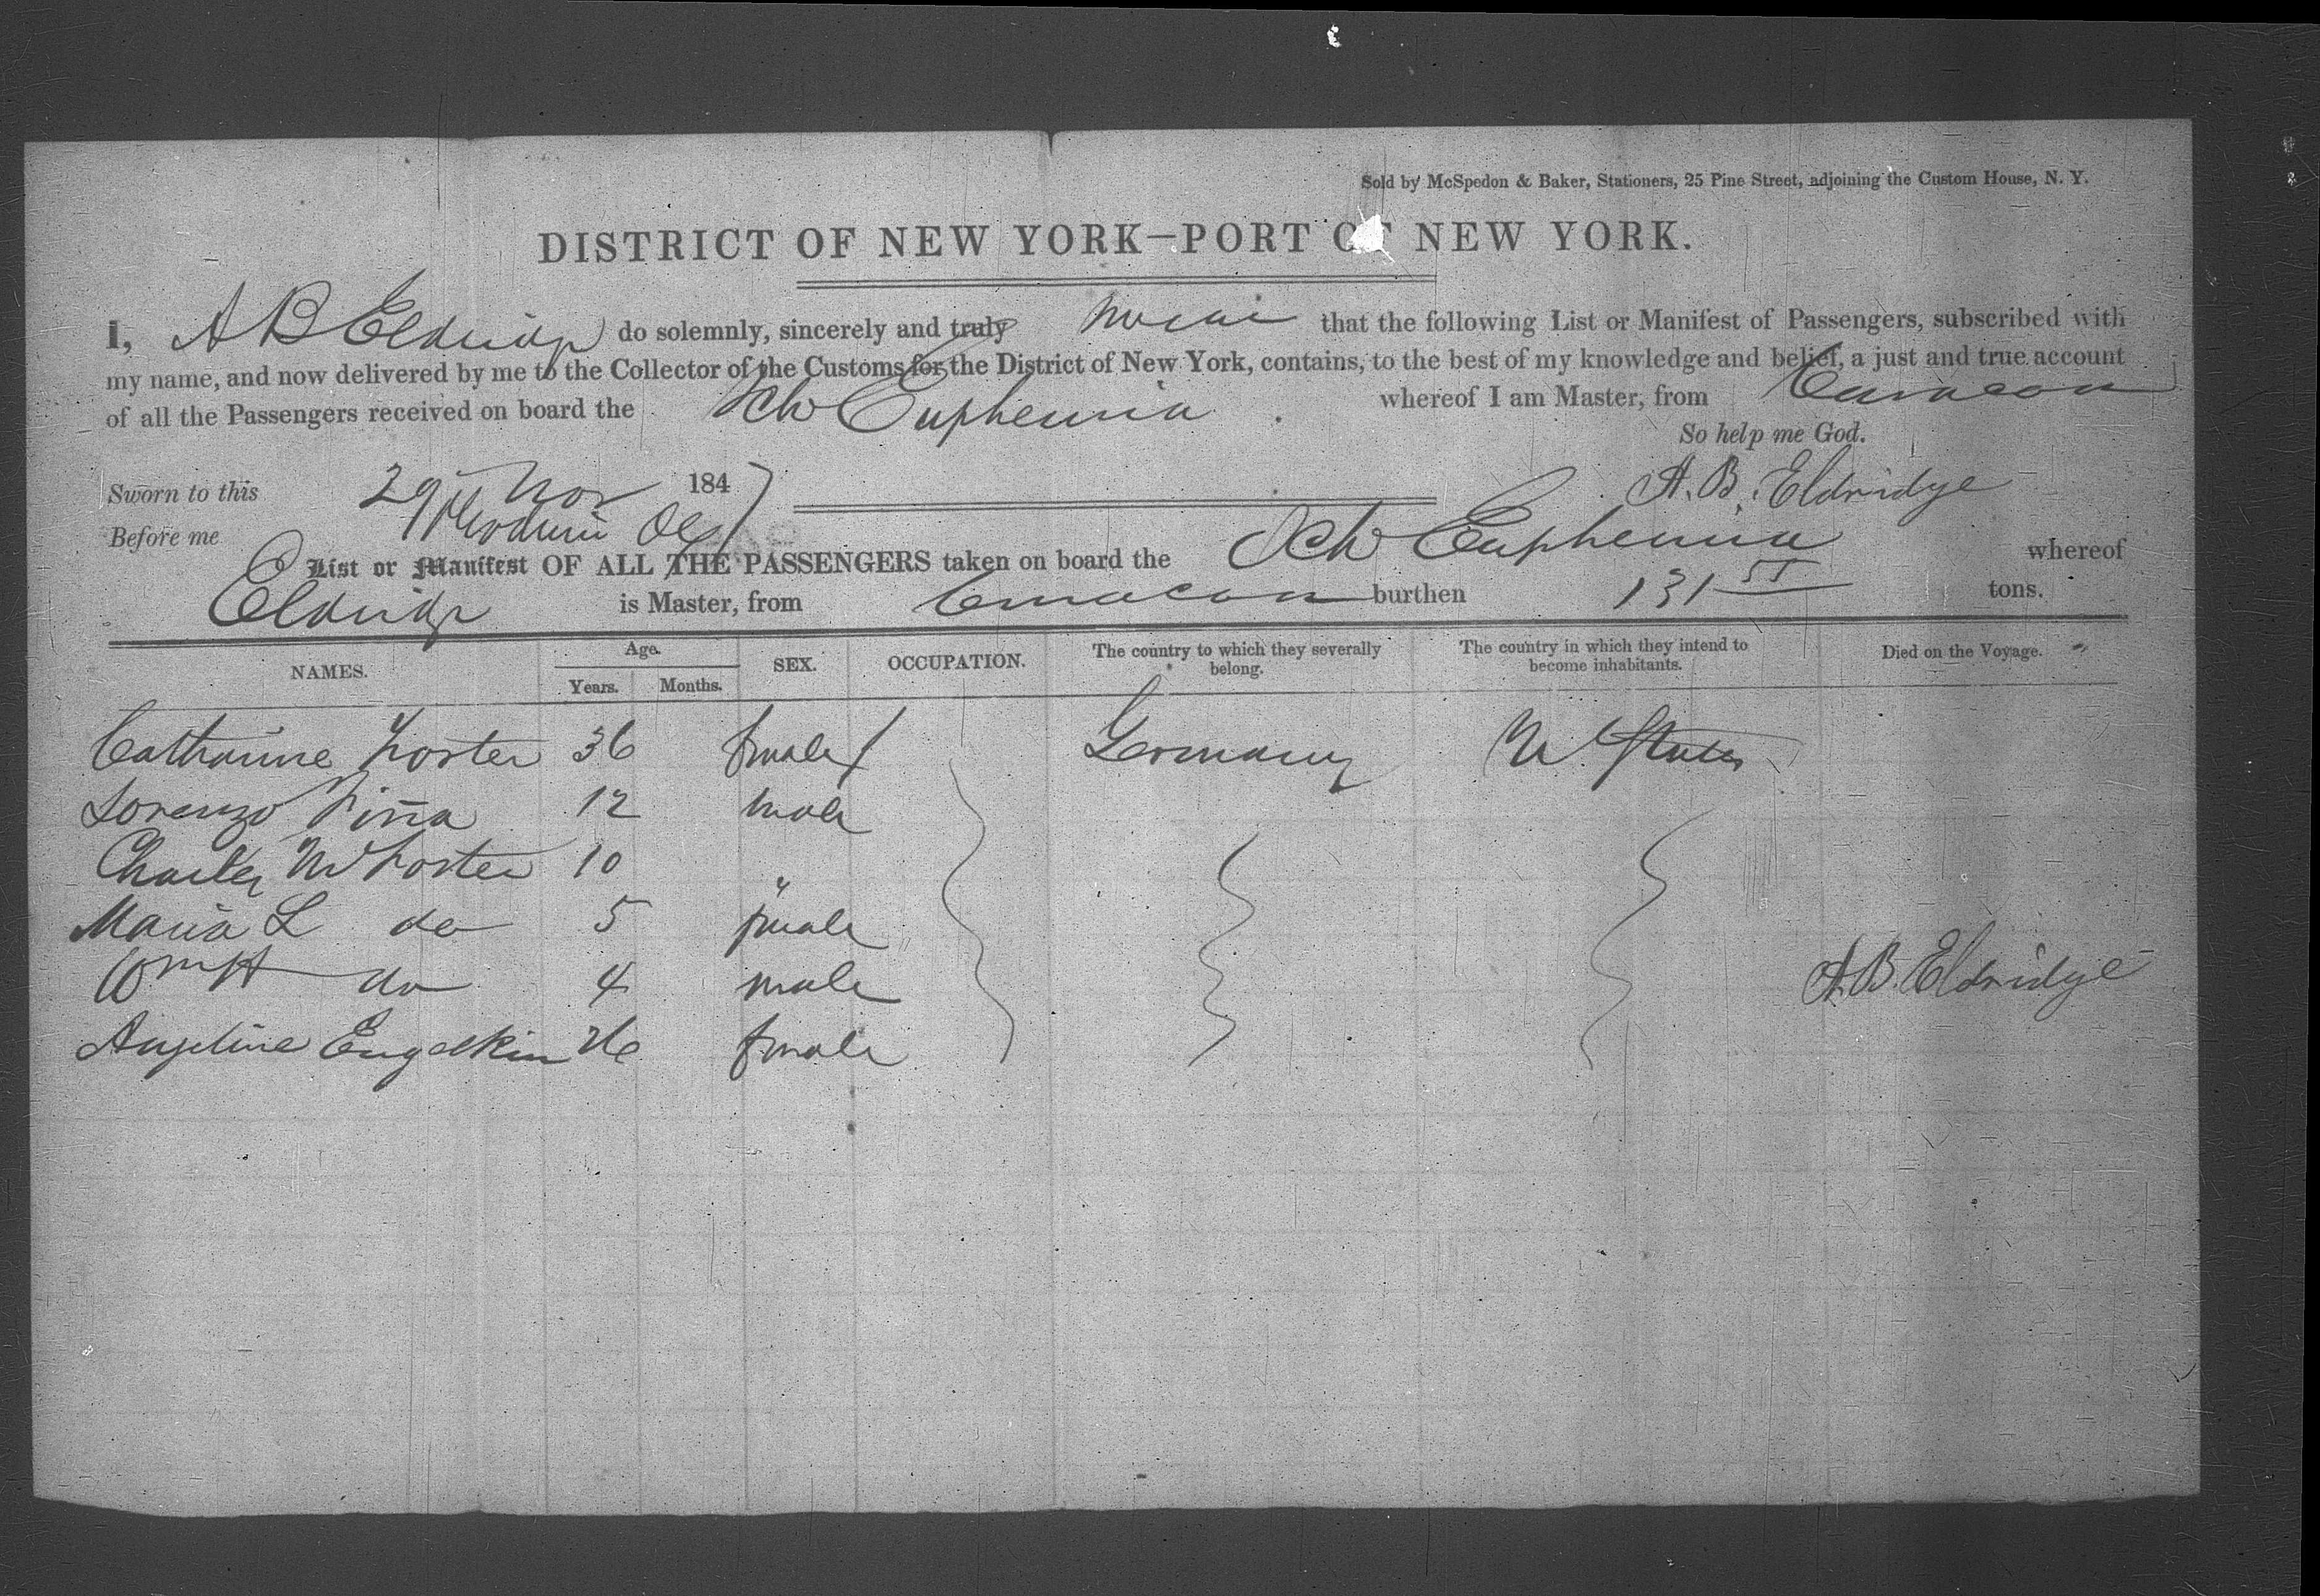 Sold by McSpedon & Baker, Stationers, 25 Pine Street, adjoining the Custom House, N. Y.
DISTRICT OF NEW YORK—PORT OF NEW YORK.
I, A B Eldridge do solemnly, sincerely and truly swear that the following List or Manifest of Passengers, subscribed with
my name, and now delivered by me to the Collector of the Customs for the District of New York, contains, to the best of my knowledge and belief, a just and true account
of all the Passengers received on board the Sch Euphemia whereof I am Master, from Curacoa
So help me God.
Sworn to this 29th Nov 1847 A. B. Eldridge
Before me
List or Manifest OF ALL THE PASSENGERS taken on board the Sch Euphemia whereof
Eldridge is Master, from Curacoa burthen 131 55 tons.
NAMES. Age. Years. Months. SEX. OCCUPATION. The country to which they severally belong. The country in which they intend to become inhabitants. Died on the Voyage.
Catharine Foster 36 female Germany U. States
Lorenzo Piña 12 male
Charles W Foster 10 "
Maria L do 5 female
Wm H do 4 male A. B. Eldridge
Angeline Engelkin 26 female